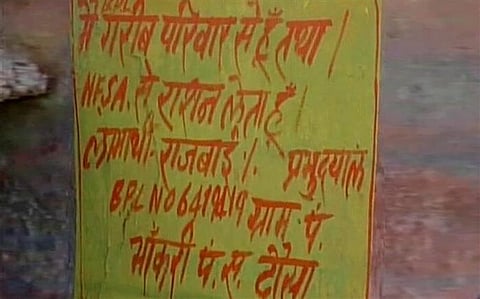 मैं गरीब परिवार से हूँ तथा ।
N.F.S.A. से राशन लेता हूँ ।
लाभार्थी:- राजबाई /. प्रभुदयाल
BPL NO 6419419 ग्राम पं.
भाँकरी पं. स. दौसा